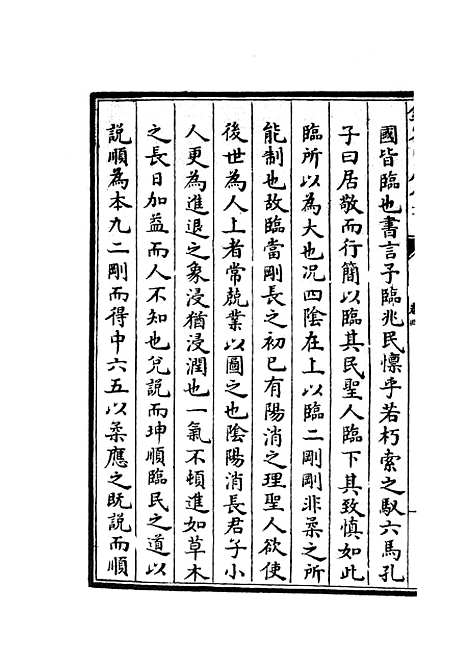 國皆臨也書言予臨兆民懍乎若朽索之馭六馬孔
子曰居敬而行簡以臨其民聖人臨下其致慎如此
臨所以為大也况四陰在上以臨二剛剛非柔之所
能制也故臨當剛長之初已有陽消之理聖人欲使
後世為人上者常兢業以圖之也陰陽消長君子小
人更為進退之象浸猶浸潤也一氣不頓進如草木
之長日加益而人不知也兌説而坤順臨民之道以
説順為本九二剛而得中六五以柔應之既説而順